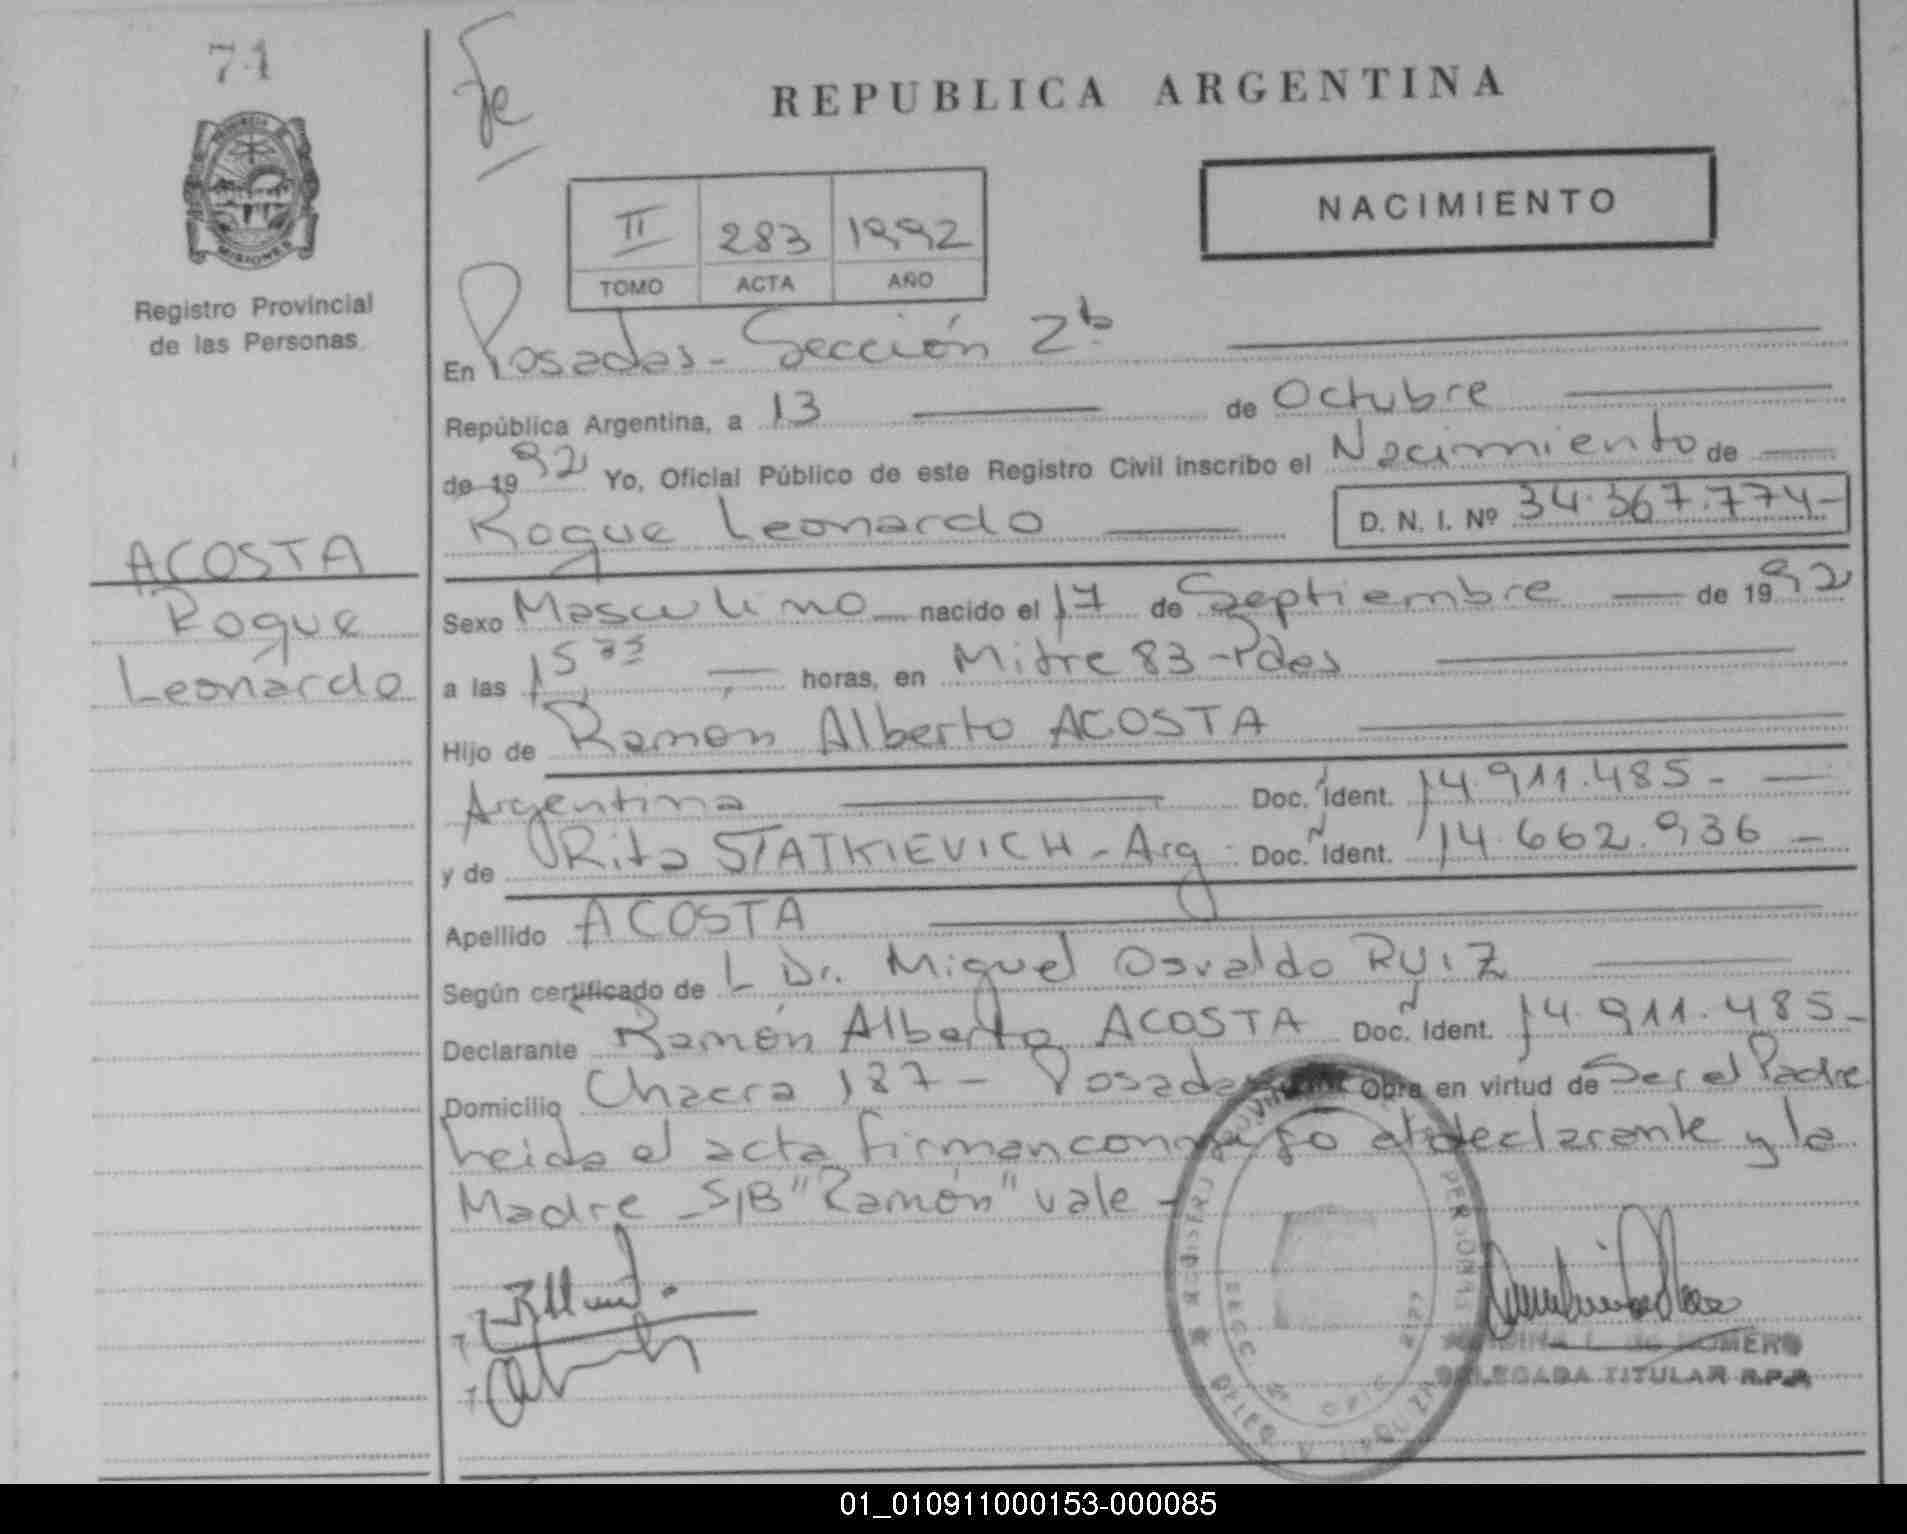 74
Fe
REPUBLICA ARGENTINA
PROVINCIA DE
MISIONES
Registro Provincial
de las Personas
II 283 1992
TOMO ACTA AÑO
NACIMIENTO
En Posadas - Sección 2ª
República Argentina, a 13 de Octubre
de 1992 Yo, Oficial Público de este Registro Civil inscribo el Nacimiento de
Roque Leonardo D. N. I. Nº 34.367.774-
ACOSTA
Roque
Leonardo
Sexo Masculino nacido el 17 de Septiembre de 1992
a las 15 horas, en Mitre 83 - Pdas
Hijo de Ramon Alberto ACOSTA
Argentina Doc. Ident. 14.911.485-
y de Rita STATKIEVICH - Arg. Doc. Ident. 14.662.936-
Apellido ACOSTA
Según certificado de L Dr. Miguel Osvaldo RUIZ
Declarante Ramón Alberto ACOSTA Doc. Ident. 14.911.485-
Domicilio Chacra 187 - Posadas Obra en virtud de Ser el Padre
Leida el acta firman conmigo el declarante y la
Madre - S/B "Ramón" vale -
ROMERO
DELEGADA TITULAR R.P.P.
01_010911000153-000085